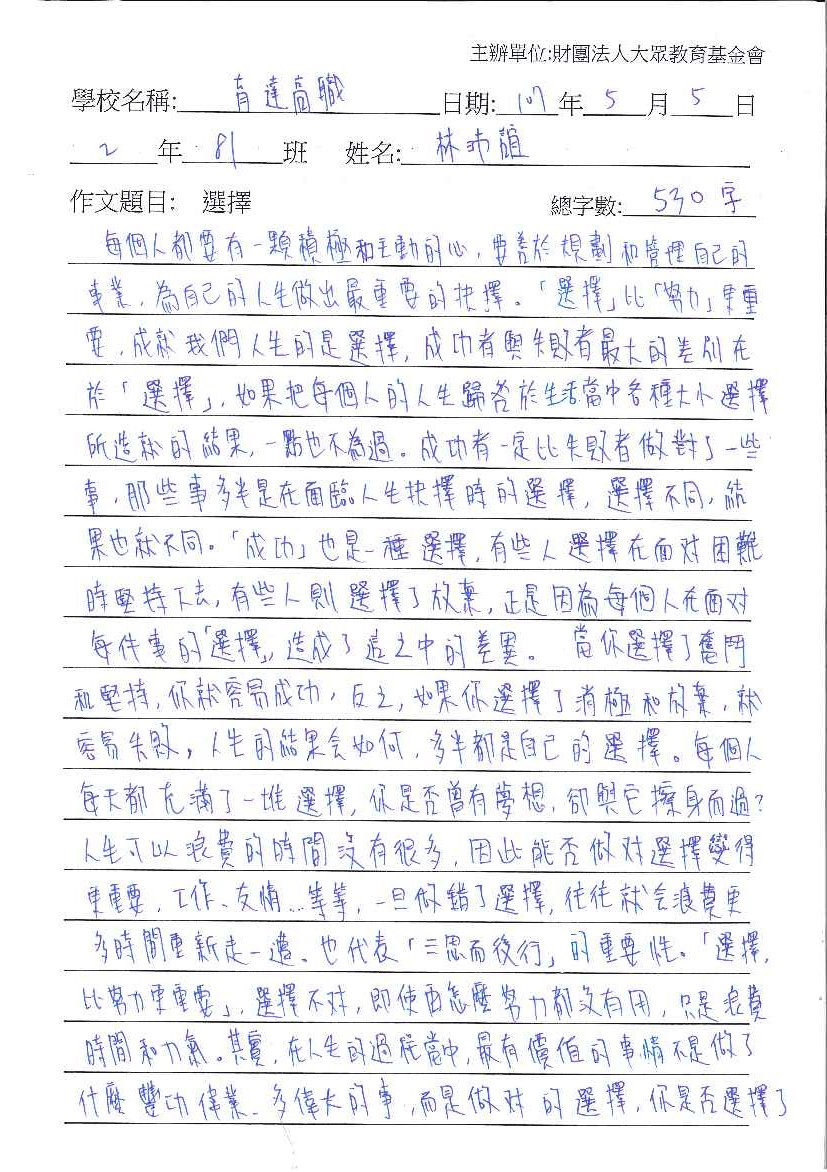 主辦單位:財團法人大眾教育基金會
學校名稱: 育達高職 日期: 107 年 5 月 5 日
2 年 81 班 姓名: 林沛誼
作文題目: 選擇 總字數: 530字
每個人都要有一顆積極和主動的心,要善於規劃和管理自己的
事業,為自己的人生做出最重要的抉擇。「選擇」比「努力」更重
要,成就我們人生的是選擇,成功者與失敗者最大的差別在
於「選擇」,如果把每個人的人生歸咎於生活當中各種大小選擇
所造就的結果,一點也不為過。成功者一定比失敗者做對了一些
事,那些事多半是在面臨人生抉擇時的選擇,選擇不同,結
果也就不同。「成功」也是一種選擇,有些人選擇在面对困難
時堅持下去,有些人則選擇了放棄,正是因為每個人在面对
每件事的「選擇」,造成了這之中的差異。 當你選擇了奮鬥
和堅持,你就容易成功,反之,如果你選擇了消極和放棄,就
容易失敗。人生的結果会如何,多半都是自己的選擇。每個人
每天都充滿了一堆選擇,你是否曾有夢想,卻與它擦身而過?
人生可以浪費的時間沒有很多,因此能否做对選擇變得
更重要,工作、友情...等等,一旦做錯了選擇,往往就会浪費更
多時間重新走一遭、也代表「三思而後行」的重要性。「選擇,
比努力更重要」,選擇不对,即使再怎麼努力都沒有用,只是浪費
時間和力氣。其實,在人生的過程當中,最有價值的事情不是做了
什麼豐功偉業、多偉大的事,而是做对的選擇,你是否選擇了